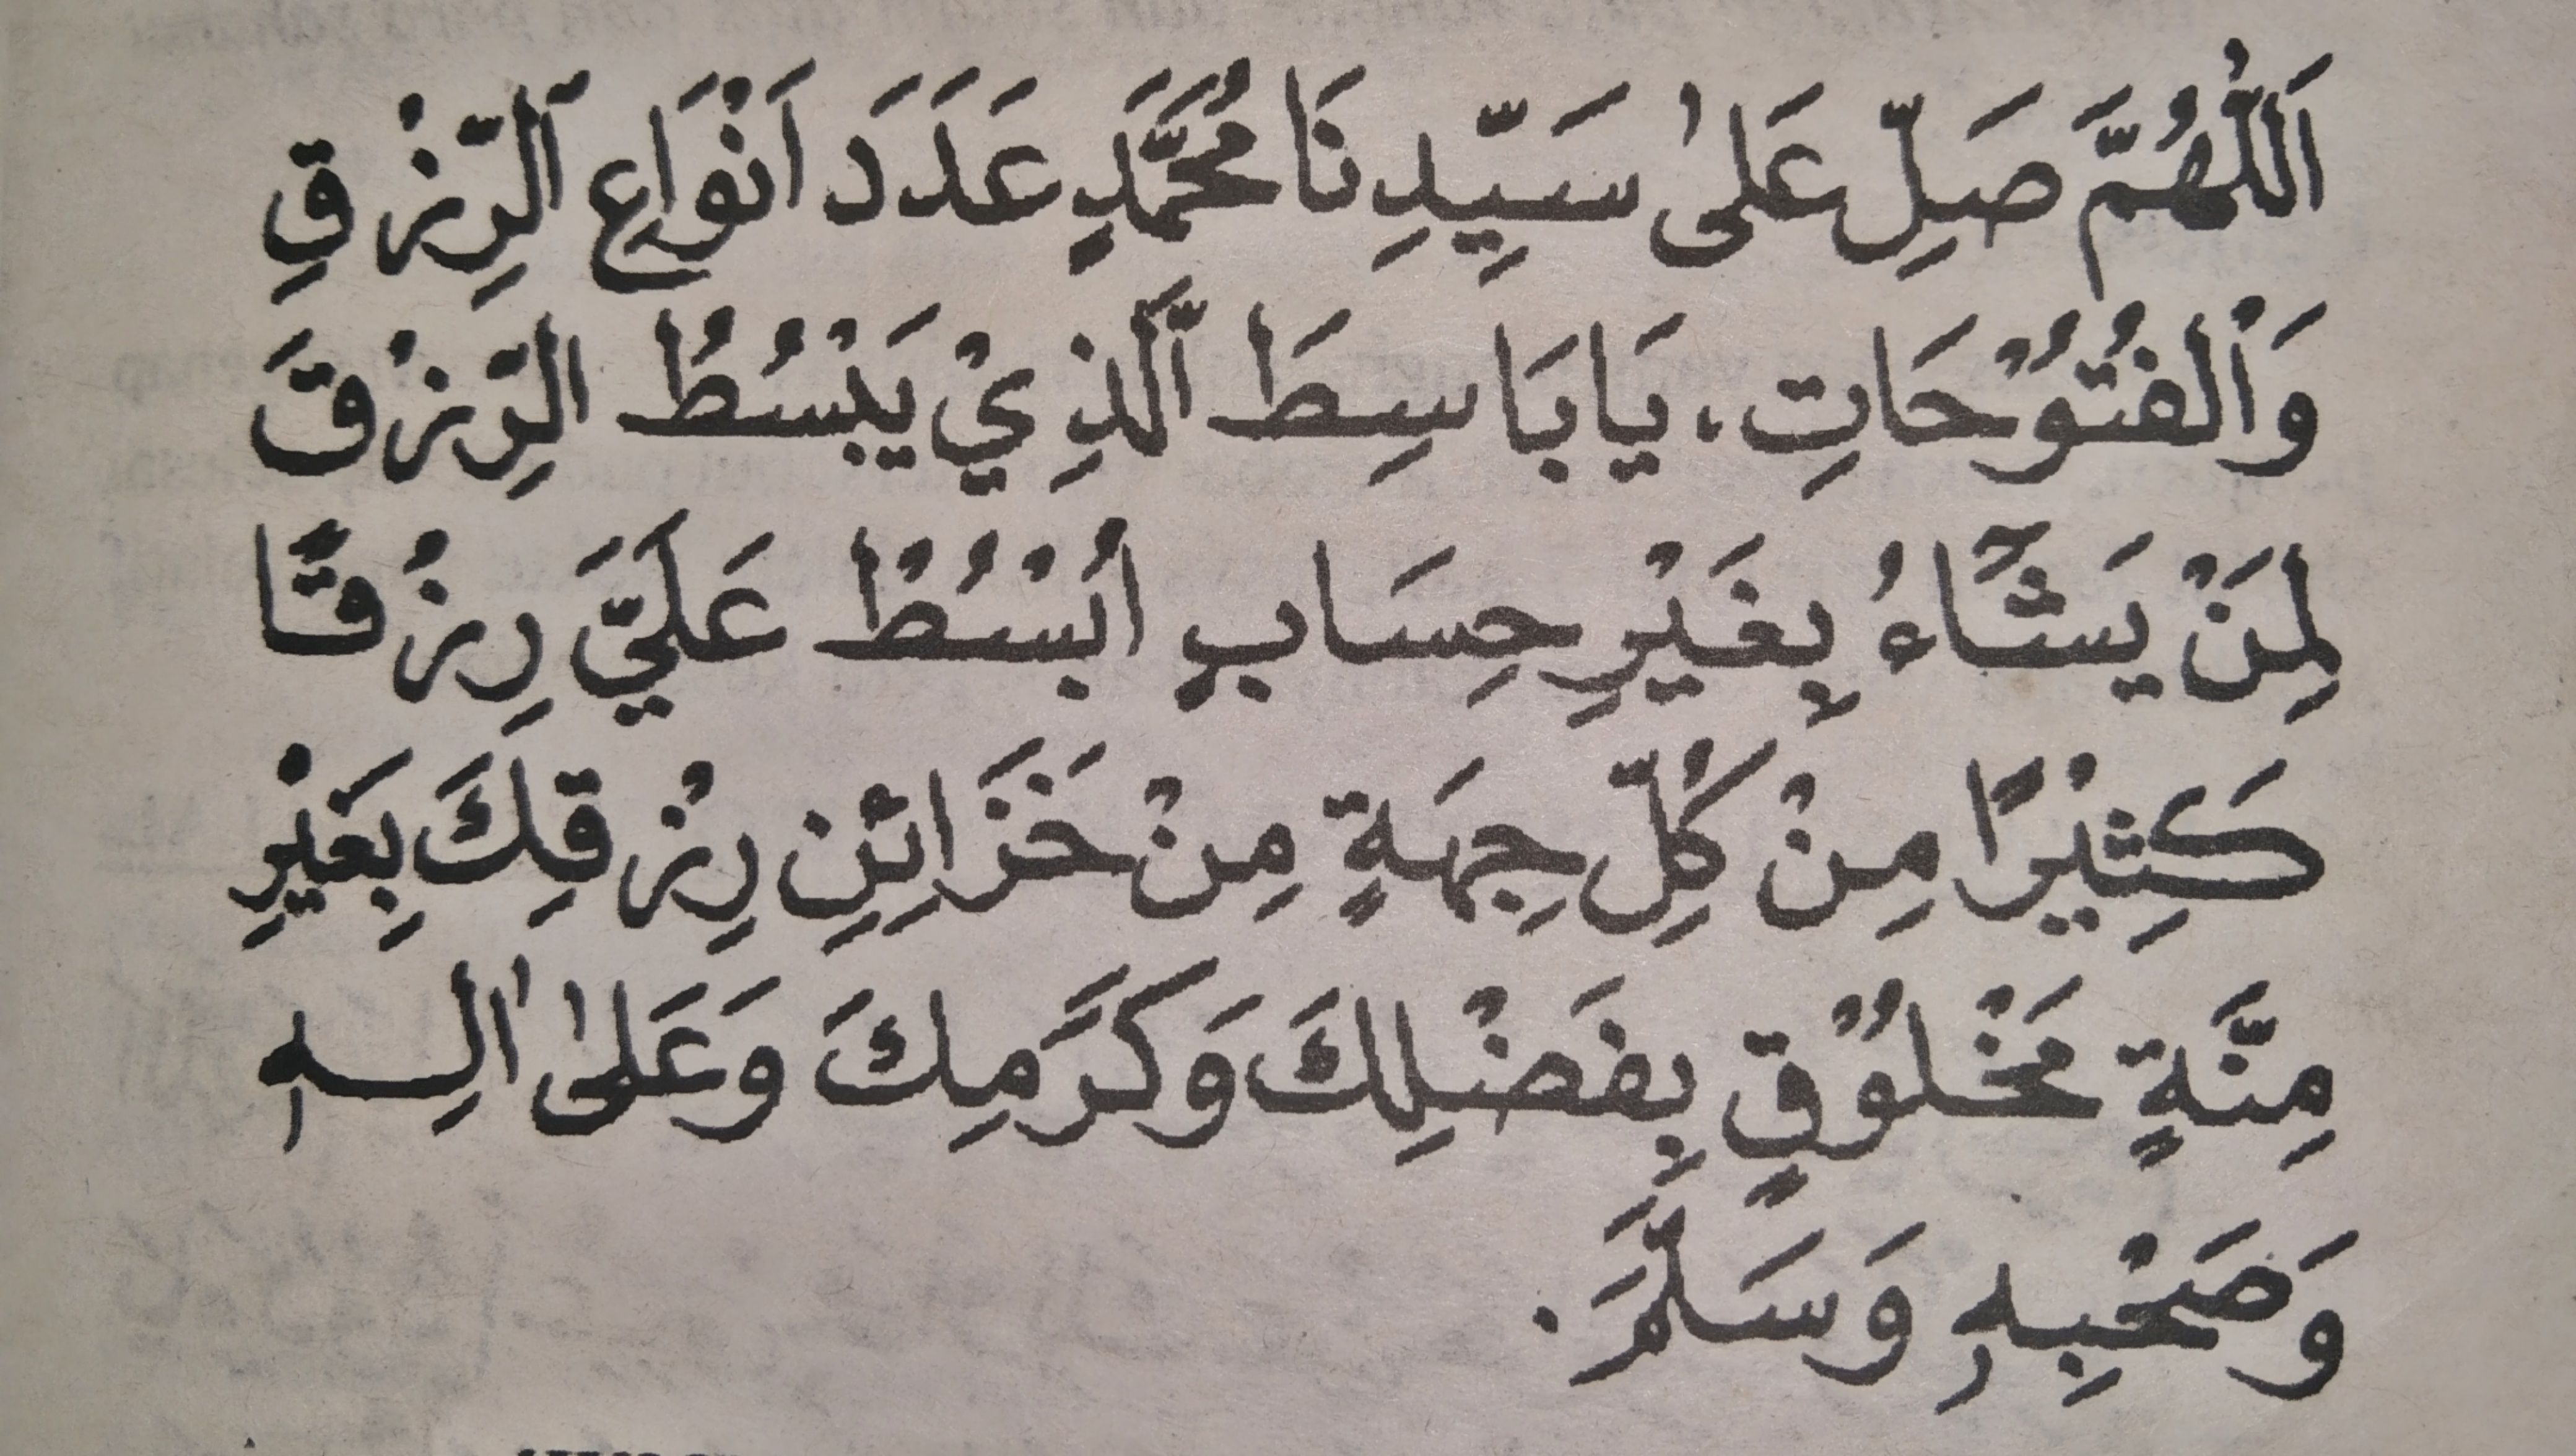 اَللّٰهُمَّ صَلِّ عَلٰى سَيِّدِنَا مُحَمَّدٍ عَدَدَ اَنْوَاعِ الَرِّزْقِ
وَاْلفُتُوْحَاتِ، يَا بَاسِطَ الَّذِيْ يَبْسُطُ الرِّزْقَ
لِمَنْ يَشَآءُ بِغَيْرِ حِسَابٍ اُبْسُطْ عَلَيَّ رِزْقًا
كَثِيْرًا مِنْ كُلِّ جِهَةٍ مِنْ خَزَائِنِ رِزْقِكَ بِغَيْرِ
مِنَّةٍ مَخْلُوْقٍ بِفَضْلِكَ وَكَرَمِكَ وَعَلٰى اٰلِهٖ
وَصَحْبِهٖ وَسَلَّمَ.